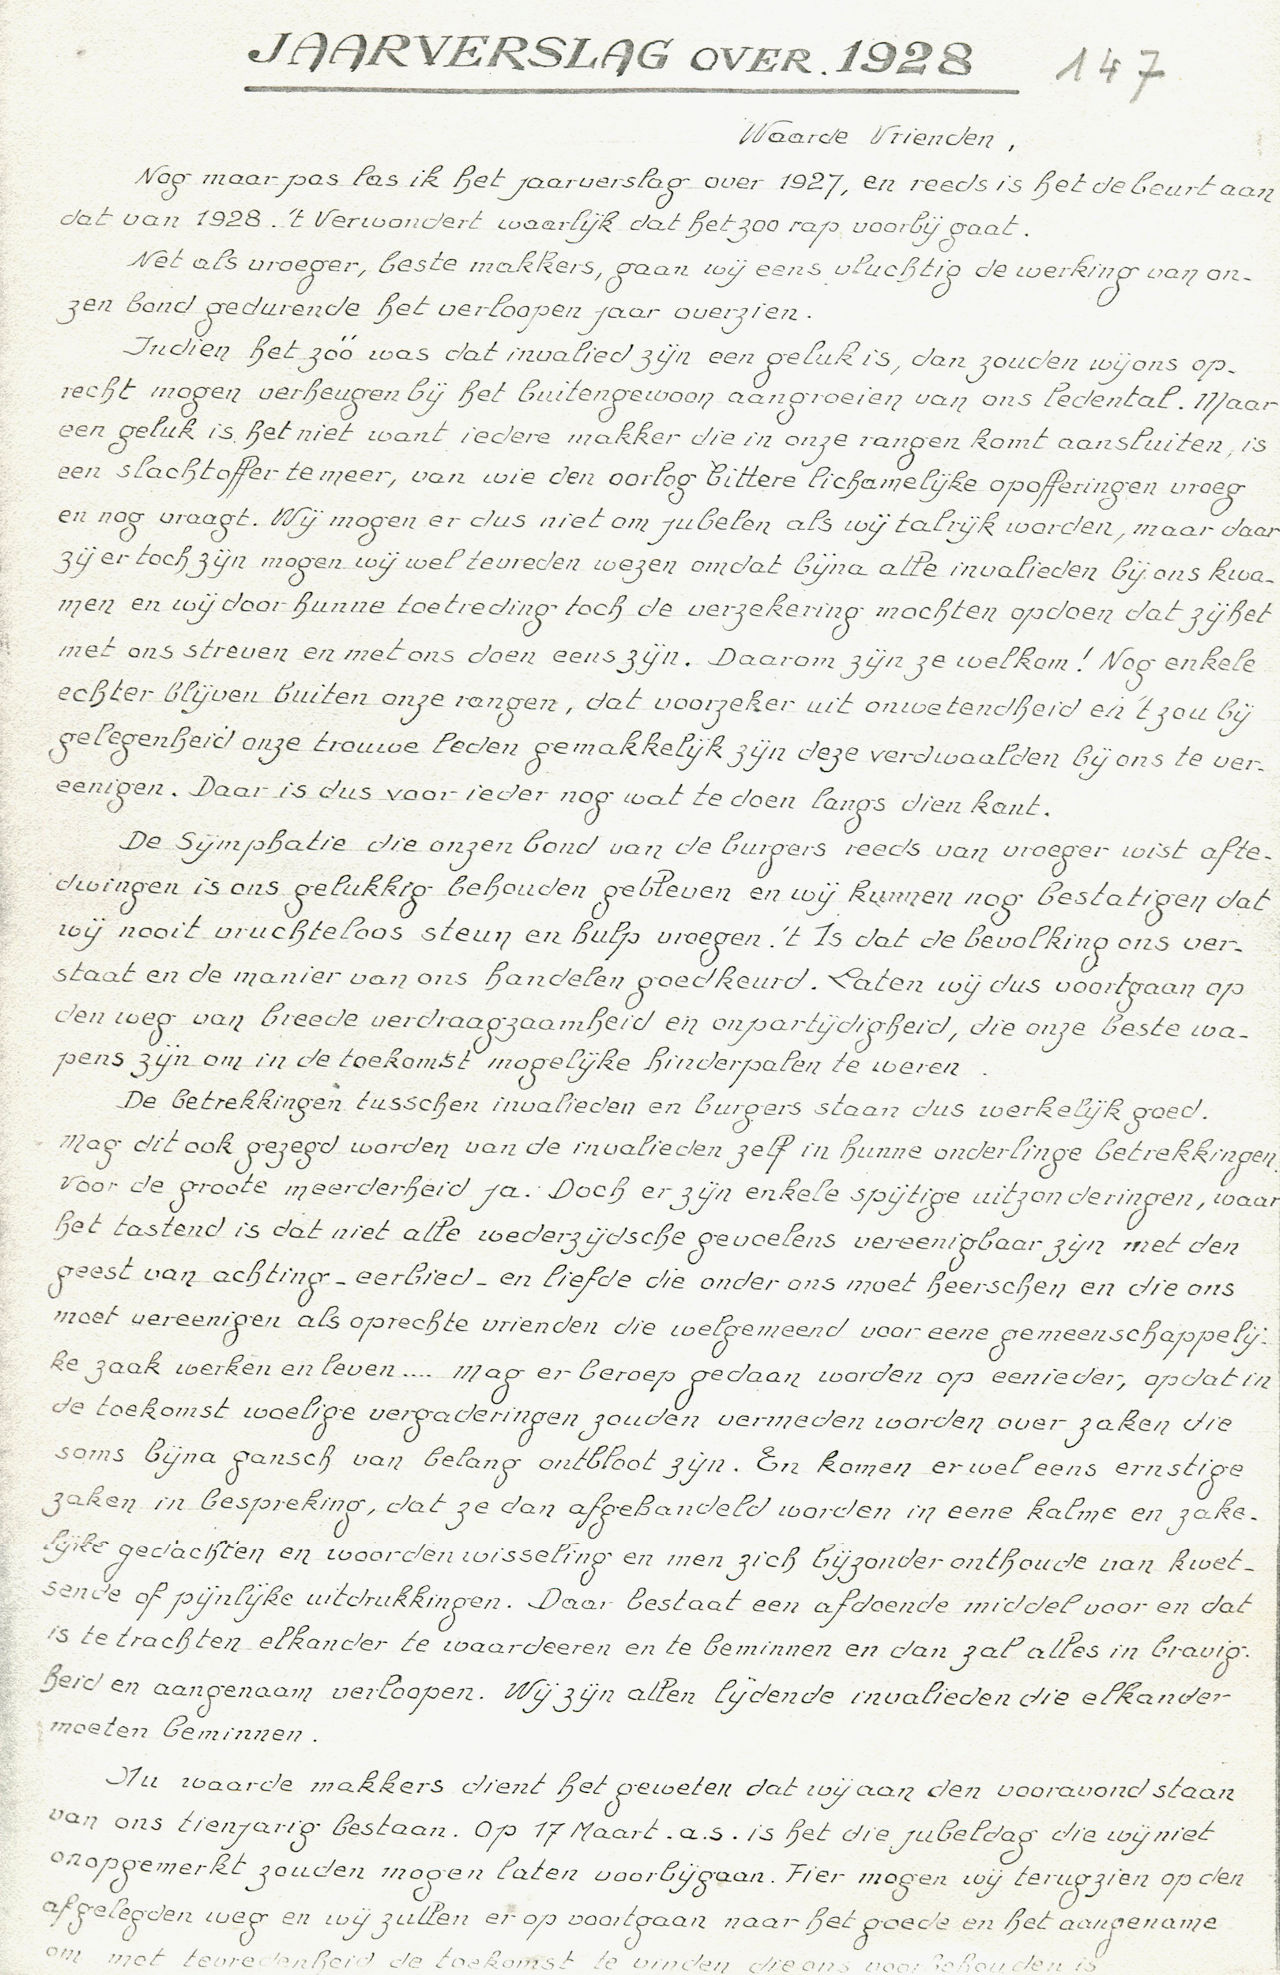 JAARVERSLAG OVER. 1928 147
Waarde Vrienden,
Nog maar pas las ik het jaarverslag over 1927, en reeds is het de beurt aan
dat van 1928. 't Verwondert waarlijk dat het zoo rap voorbij gaat.
Net als vroeger, beste makkers, gaan wij eens vluchtig de werking van on-
zen bond gedurende het verloopen jaar overzien.
Indien het zóó was dat invalied zijn een geluk is, dan zouden wij ons op-
recht mogen verheugen bij het buitengewoon aangroeien van ons ledental. Maar
een geluk is het niet want iedere makker die in onze rangen komt aansluiten, is
een slachtoffer te meer, van wie den oorlog bittere lichamelijke opofferingen vroeg
en nog vraagt. Wij mogen er dus niet om jubelen als wij talrijk worden, maar daar
zij er toch zijn mogen wij wel tevreden wezen omdat bijna alle invalieden bij ons kwa-
men en wij door hunne toetreding toch de verzekering mochten opdoen dat zij het
met ons streven en met ons doen eens zijn. Daarom zijn ze welkom! Nog enkele
echter blijven buiten onze rangen, dat voorzeker uit onwetendheid en 't zou bij
gelegenheid onze trouwe leden gemakkelijk zijn deze verdwaalden bij ons te ver-
eenigen. Daar is dus voor ieder nog wat te doen langs dien kant.
De Symphatie die onzen bond van de burgers reeds van vroeger wist afte-
dwingen is ons gelukkig behouden gebleven en wij kunnen nog bestatigen dat
wij nooit vruchteloos steun en hulp vroegen. 't Is dat de bevolking ons ver-
staat en de manier van ons handelen goedkeurd. Laten wij dus voortgaan op
den weg van breede verdraagzaamheid en onpartijdigheid, die onze beste wa-
pens zijn om in de toekomst mogelijke hinderpalen te weren.
De betrekkingen tusschen invalieden en burgers staan dus werkelijk goed.
Mag dit ook gezegd worden van de invalieden zelf in hunne onderlinge betrekkingen.
Voor de groote meerderheid ja. Doch er zijn enkele spijtige uitzonderingen, waar
het tastend is dat niet alle wederzijdsche gevoelens vereenigbaar zijn met den
geest van achting - eerbied - en liefde die onder ons moet heerschen en die ons
moet vereenigen als oprechte vrienden die welgemeend voor eene gemeenschappelij-
ke zaak werken en leven.... Mag er beroep gedaan worden op eenieder, opdat in
de toekomst woelige vergaderingen zouden vermeden worden over zaken die
soms bijna gansch van belang ontbloot zijn. En komen er wel eens ernstige
zaken in bespreking, dat ze dan afgehandeld worden in eene kalme en zake-
lijke gedachten en woordenwisseling en men zich bijzonder onthoude van kwet-
sende of pijnlijke uitdrukkingen. Daar bestaat een afdoende middel voor en dat
is te trachten elkander te waardeeren en te beminnen en dan zal alles in bravig-
heid en aangenaam verloopen. Wij zijn allen lijdende invalieden die elkander
moeten beminnen.
Nu waarde makkers dient het geweten dat wij aan den vooravond staan
van ons tienjarig bestaan. Op 17 Maart. a.s. is het die jubeldag die wij niet
onopgemerkt zouden mogen laten voorbijgaan. Fier mogen wij terugzien op den
afgelegden weg en wij zullen er op voortgaan naar het goede en het aangename
om met tevredenheid de toekomst te vinden die ons voorbehouden is